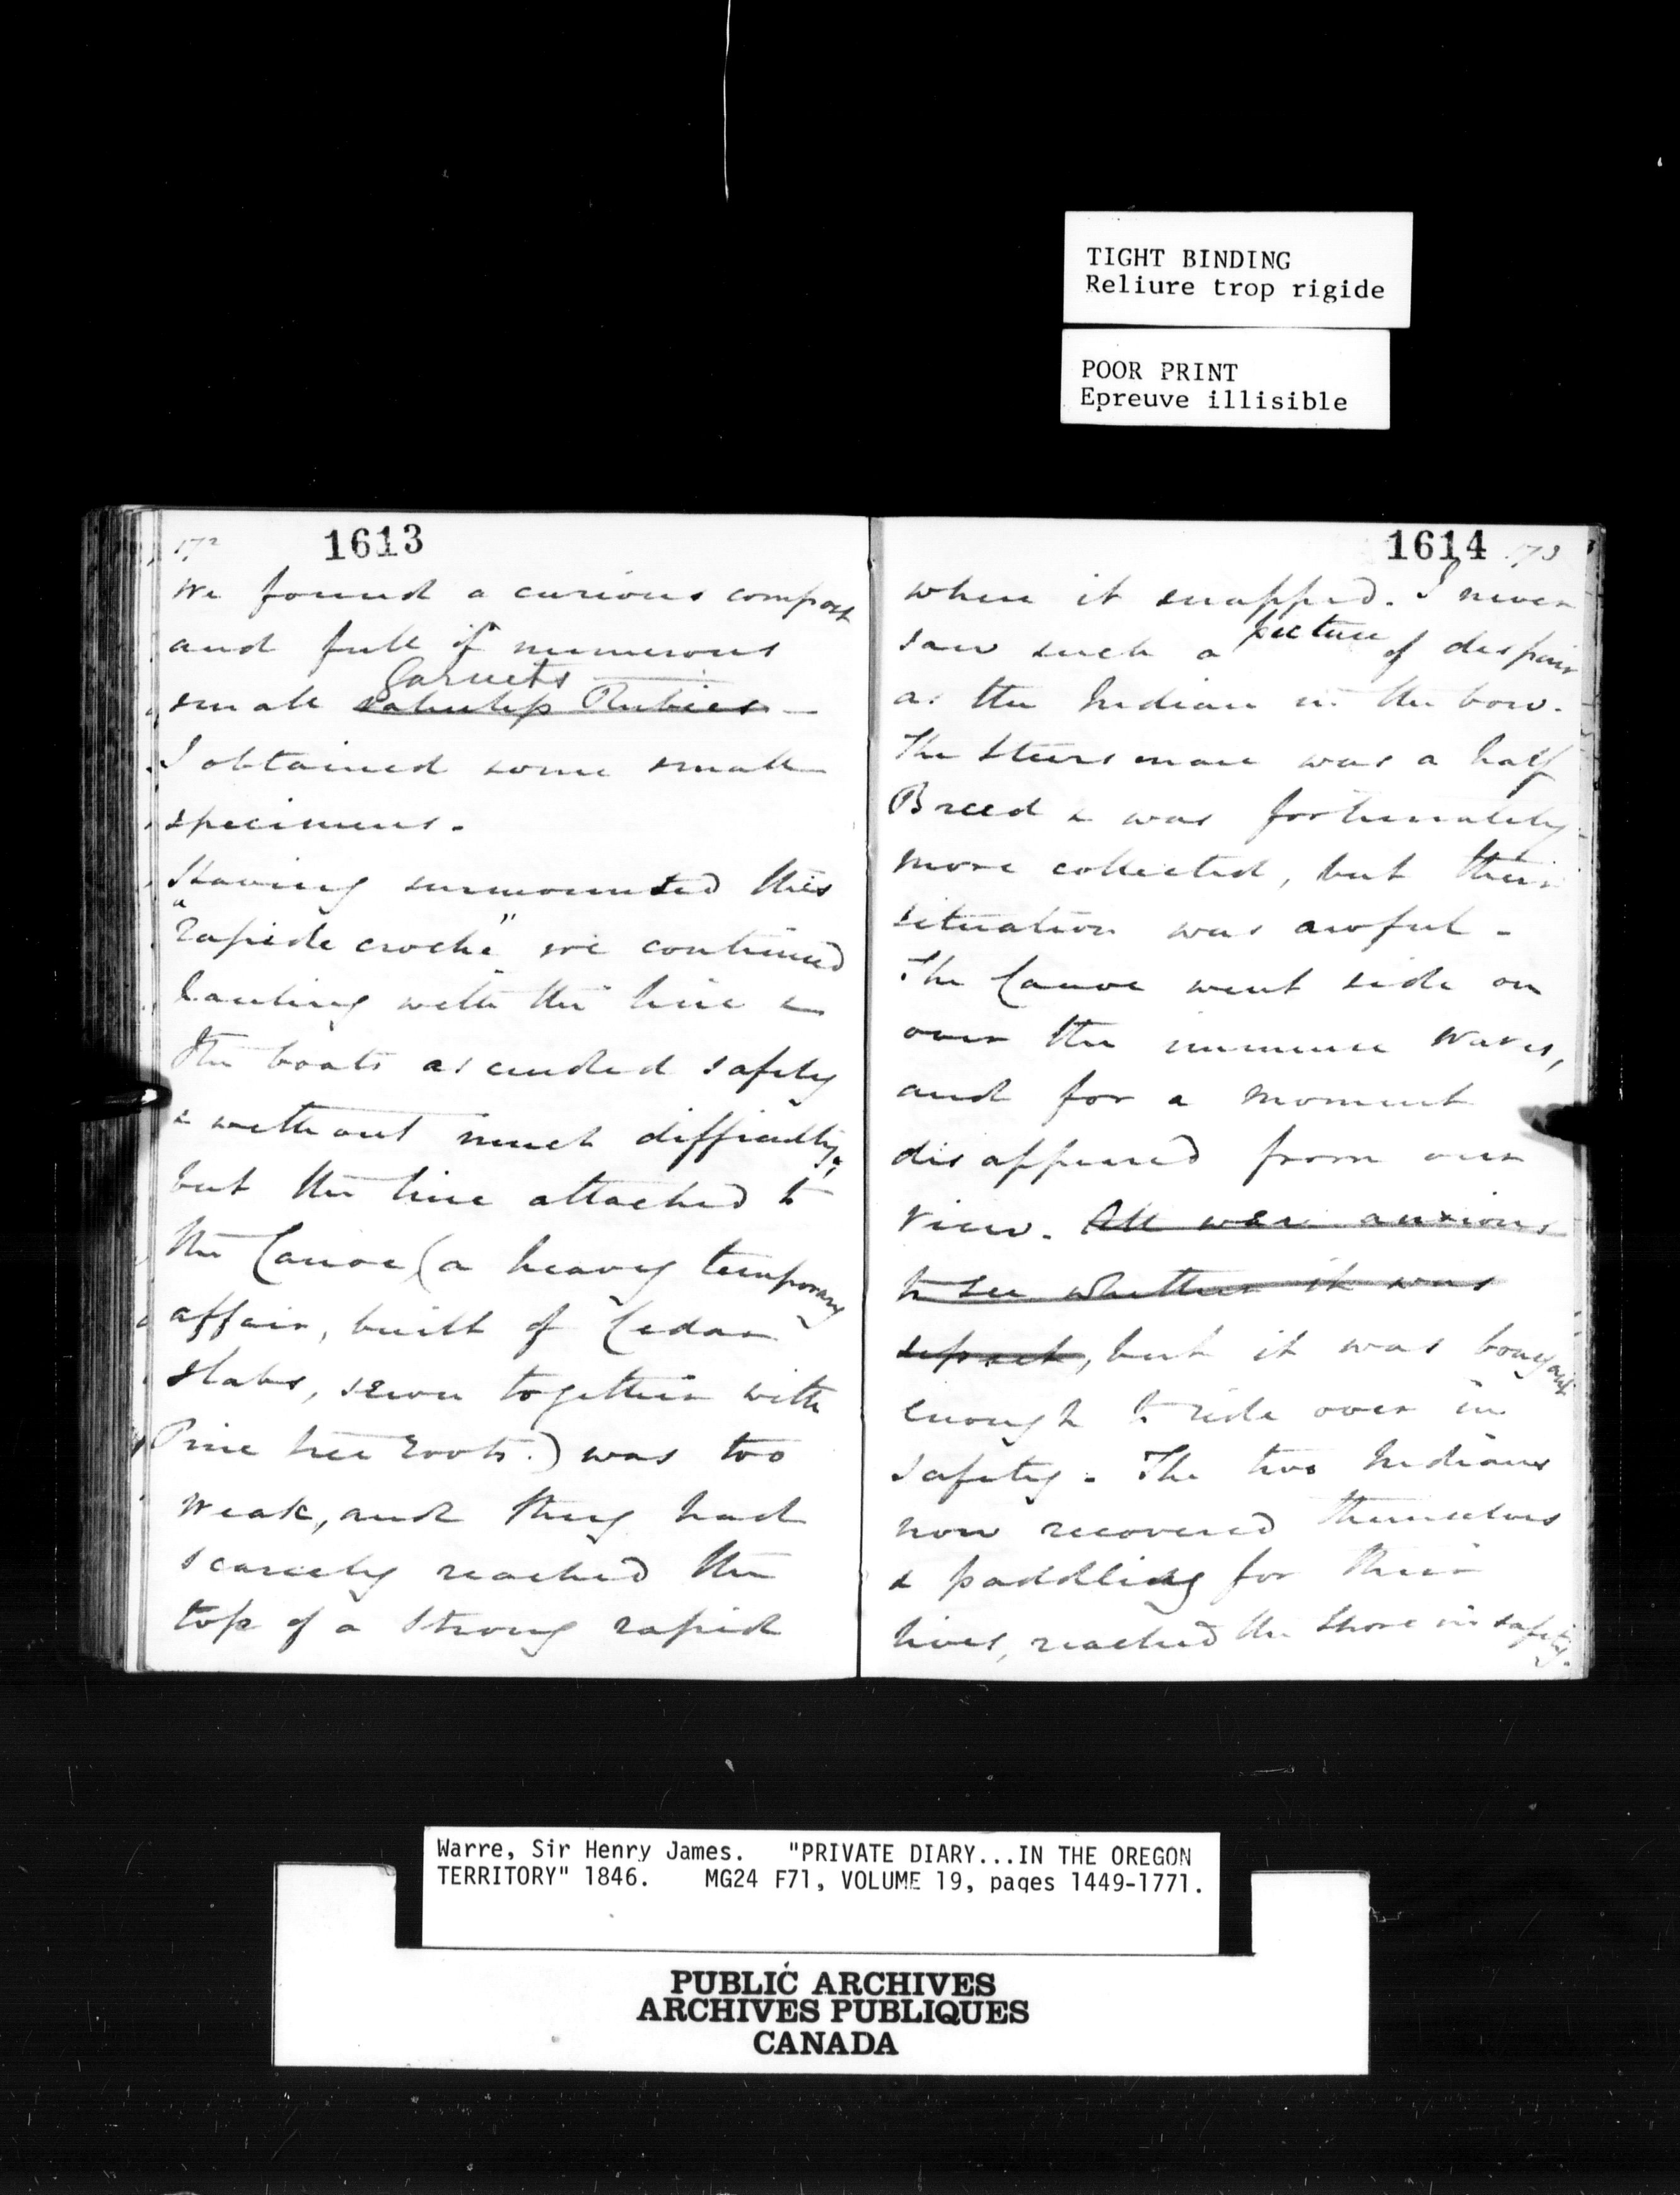 TIGHT BINDING
Reliure trop rigide
POOR PRINT
Epreuve illisible
172
1613
We found a curious compost
and full of numerous
Garnets
small Rubies —
I obtained some small
specimens.
Having surmounted this
"rapide croche" we continued
hauling with the line &
the boats ascended safely
& without much difficulty,
but the line attached to
the Canoe (a heavy temporary
affair, built of Cedar
slabs, sewn together with
Pine tree roots.) was too
weak, and they had
scarcely reached the
top of a strong rapid
1614
173
when it snapped. I never
saw such a picture of despair
as the Indian in the bow.
The Steersman was a half
Breed & was fortunately
more collected, but their
situation was awful -
The Canoe went side on
over the immense waves,
and for a moment
disappeared from our
view. All were anxious
to see whether it was
upset, but it was bouyant
enough to ride over in
safety. The two Indians
now recovered themselves
& paddling for their
lives, reached the shore in safety.
Warre, Sir Henry James. "PRIVATE DIARY...IN THE OREGON
TERRITORY" 1846. MG24 F71, VOLUME 19, pages 1449-1771.
PUBLIC ARCHIVES
ARCHIVES PUBLIQUES
CANADA